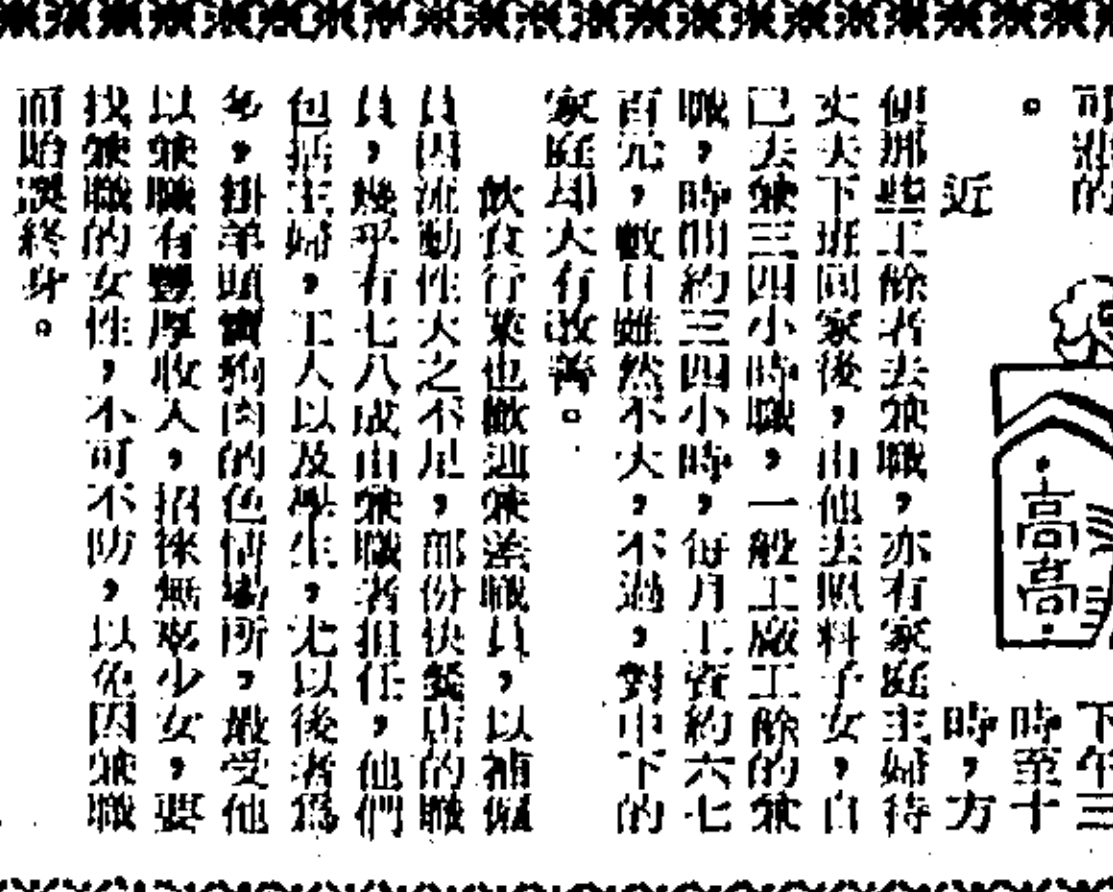 可悲的
。
下午三
時至十
近
時，方
便那些工餘者去兼職，亦有家庭主婦待
丈夫下班回家後，由他去照料子女，自
己去兼三四小時職，一般工廠工餘的兼
職，時間約三四小時，每月工資約六七
百元，數目雖然不大，不過，對中下的
家庭却大有改善。
飲食行業也歡迎兼差職員，以補償
員因流動性大之不足，部份快餐店的職
員，幾乎有七八成由兼職者担任，他們
包括主婦，工人以及學生，尤以後者爲
多，掛羊頭賣狗肉的色情場所，最受他
以兼職有豐厚收入，招徠無知少女，要
找兼職的女性，不可不防，以免因兼職
而貽誤終身。
高高